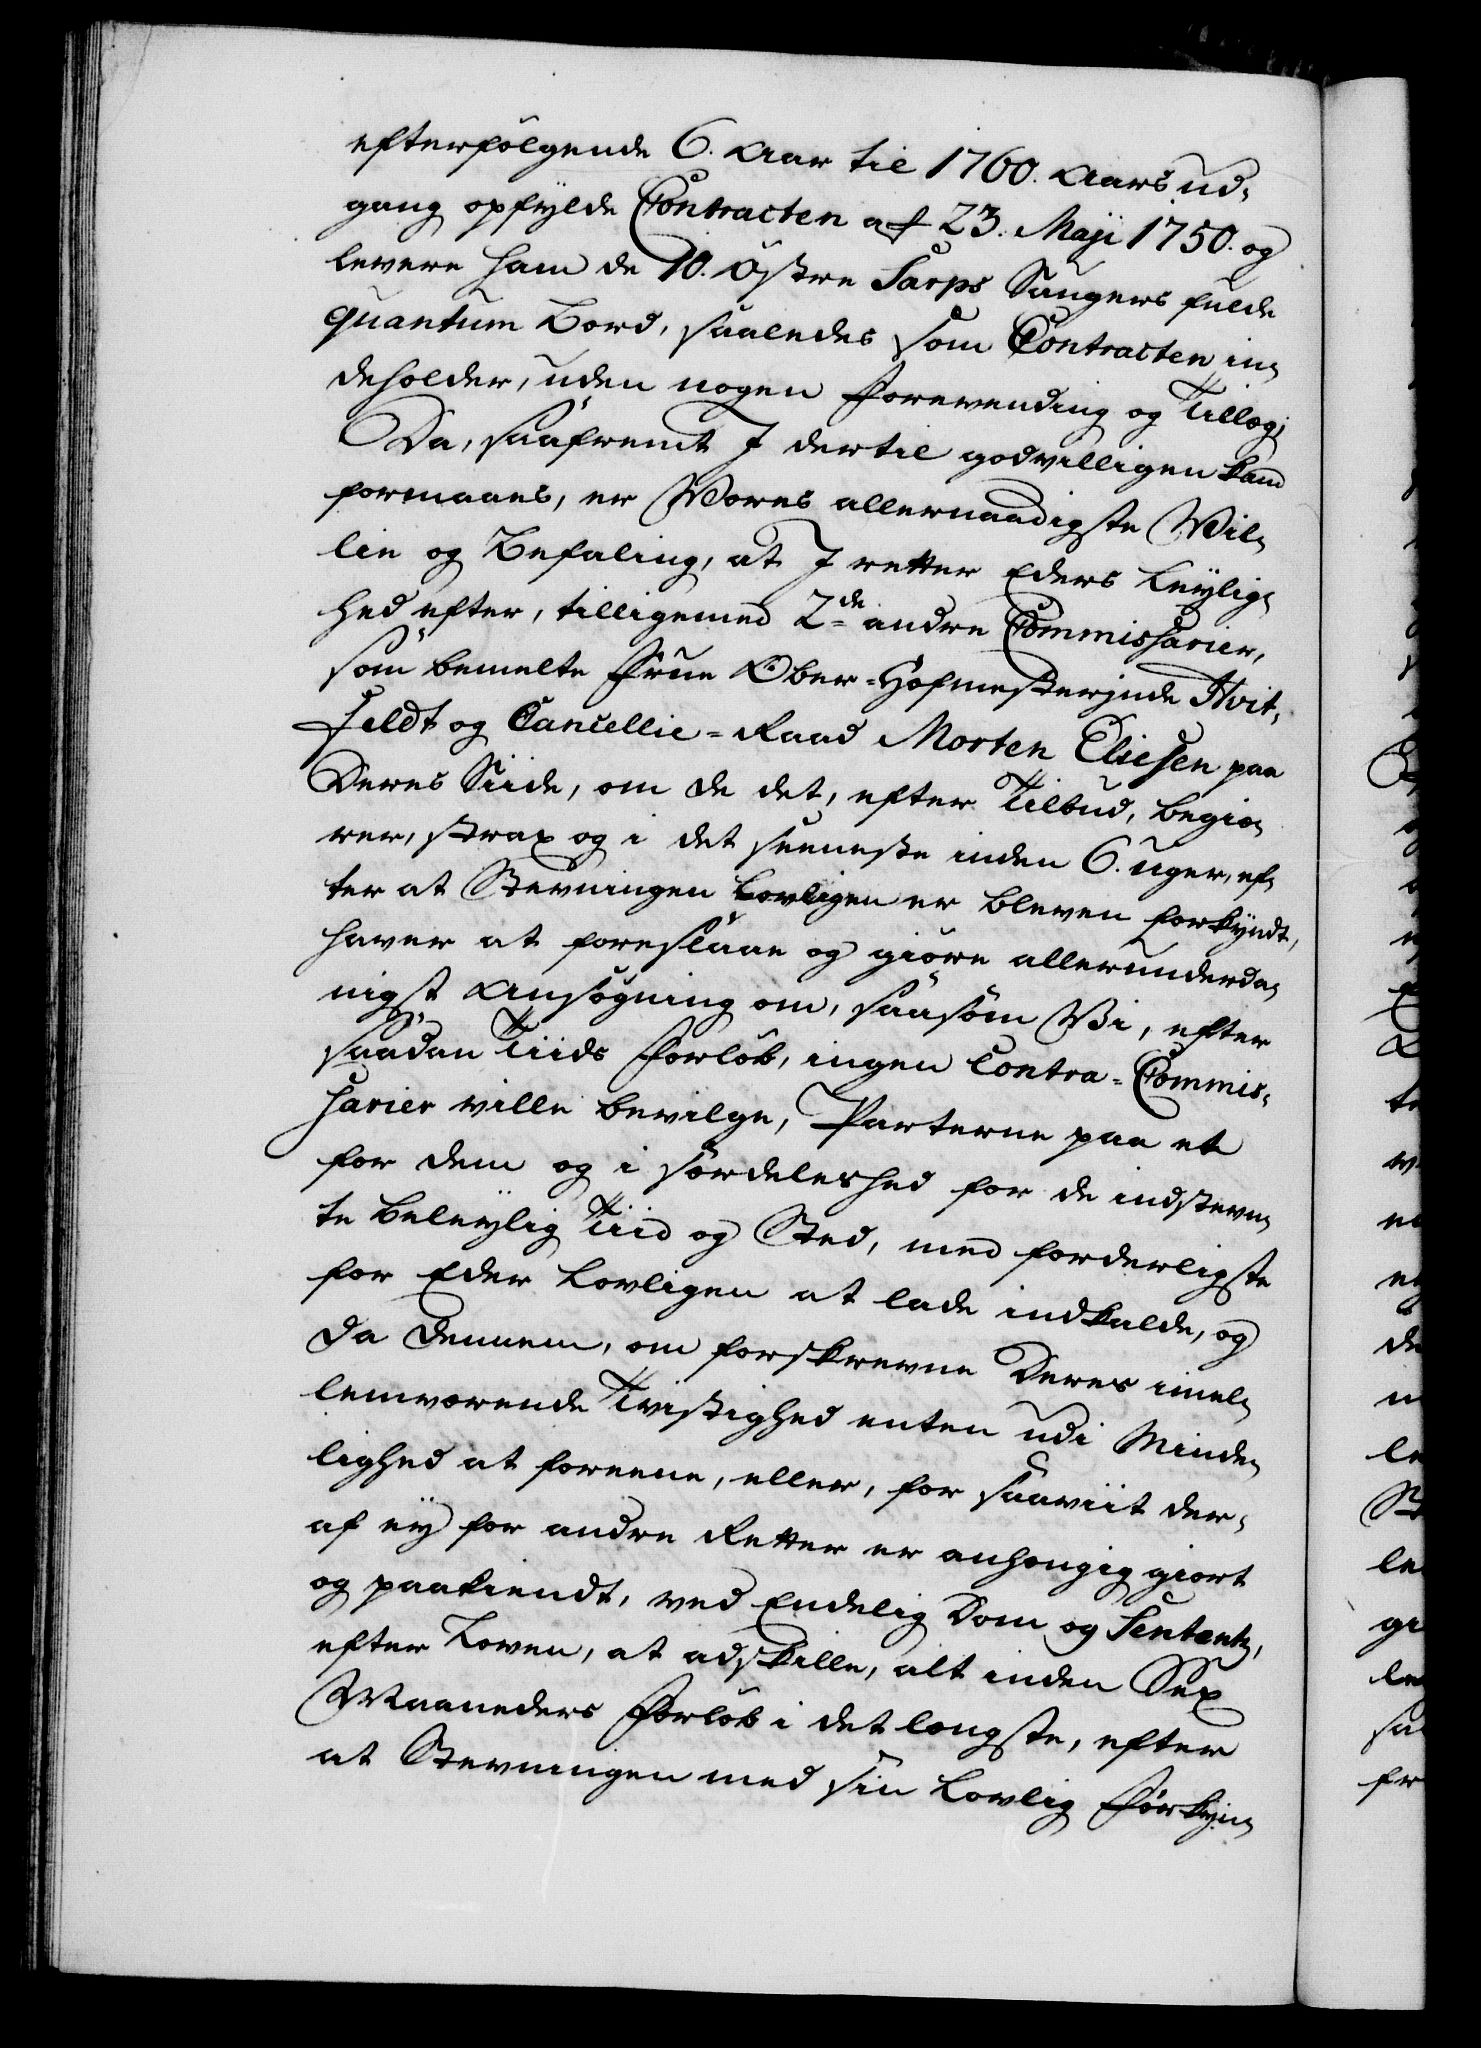 efterfölgende 6. Aar til 1760. Aars ud-
gang opfylde Contracten af 23. Maji 1750. og
levere ham de 10. Östre Sarps Saugers fulde
quantum Bord, saaledes som Contracten in-
deholder, uden nogen Forevending og Tillæg;
Da, saafremt I dertil godvilligen kand
formaaes, er Vores allernaadigste Vil-
lie og Befaling, at I retter Eders Leylig-
hed efter, tilligemed 2de andre Commissarier,
som bemelte Frue Ober-Hofmesterjnde Hvit-
feldt og Cancellie-Raad Morten Eliesen paa
Deres Siide, om de det, efter Tilbud, begiæ-
rer, strax og i det seeneste inden 6. uger, ef-
ter at Stevningen lovligen er bleven forkyndt,
haver at foreslaae og giöre allerunderda-
nigst Ansögning om, saasom Vi, efter
saadan Tiids Forlöb, ingen Contra-Commis-
sarier ville bevilge, Parterne paa et
for dem og i særdeleshed for de indstevn-
te beleylig Tiid og Sted, med forderligste
for Eder lovligen at lade indkalde, og
da dennem, om forskrevne Deres imel-
lemværende Tvistighed enten udi Minde-
lighed at foreene, eller, for saaviit der-
af ey for andre Retter er anhængig giort
og paakiendt, ved Endelig Dom og Sententz,
efter Loven, at adskille, alt inden Sex
Maaneders Forlöb i det længste, efter
at Stevningen med sin lovlig Forkyn-